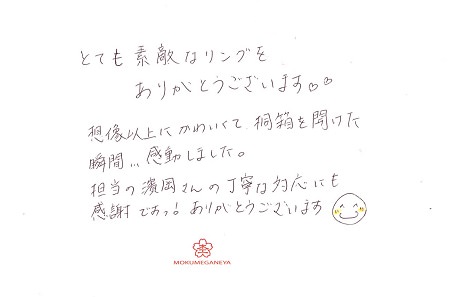 とても素敵なリングを
ありがとうございます♡♡
想像以上にかわいくて、桐箱を開けた
瞬間…感動しました。
担当の濱岡さんの丁寧な対応にも
感謝ですっ! ありがとうございます
MOKUMEGANEYA